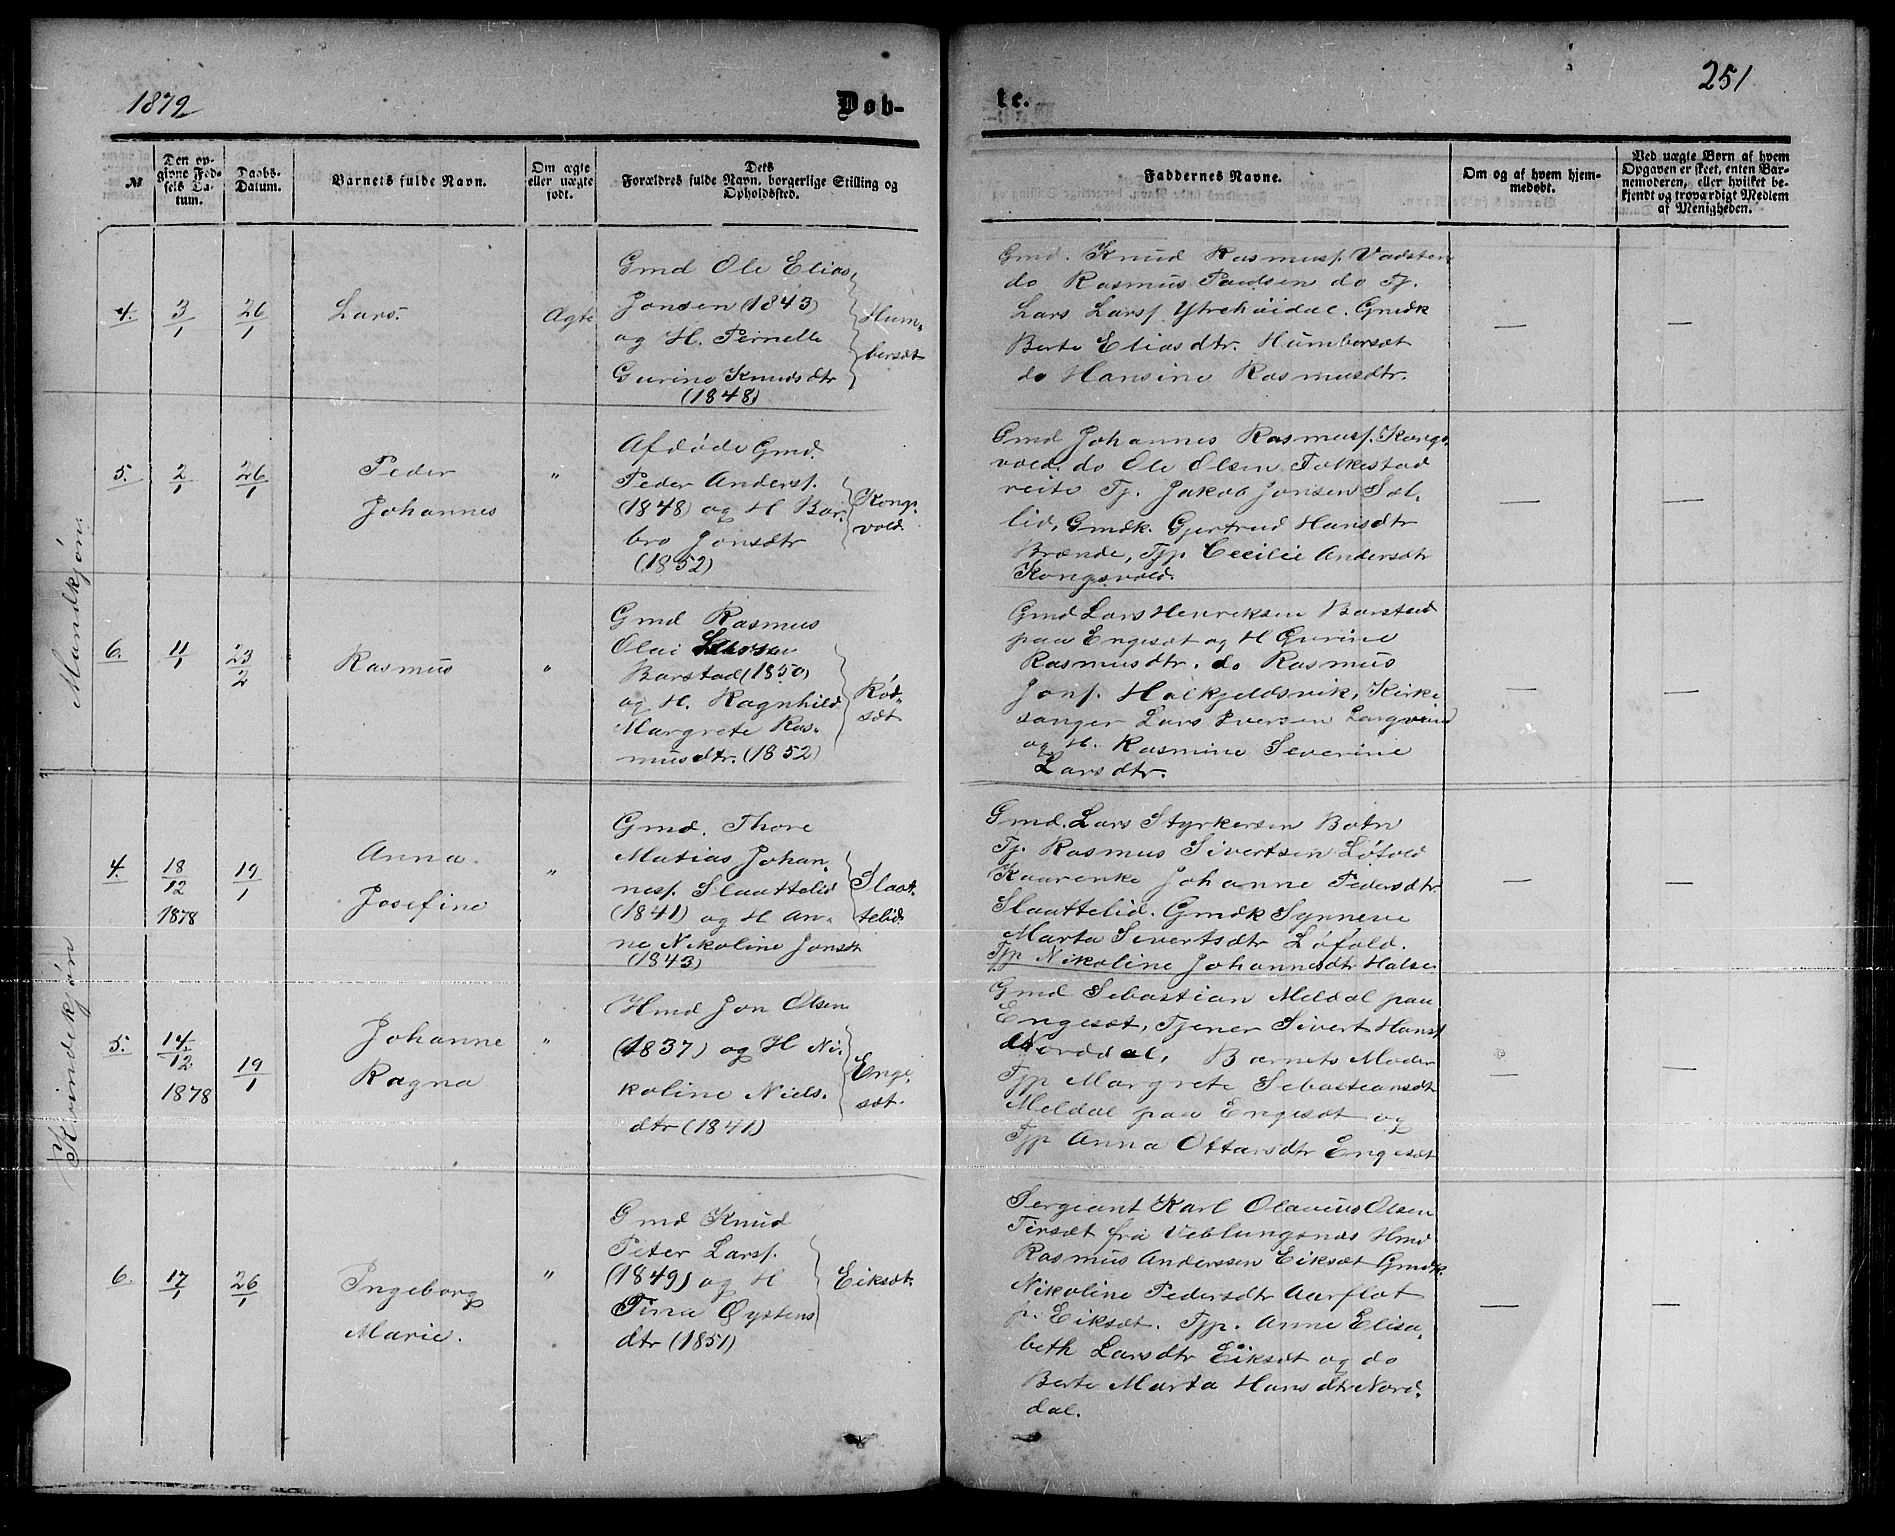 1879
Døb-
te.
251
№
Den op-
givne Fød-
sels Da-
tum.
Daabs-
Datum.
Barnets fulde Navn.
Om ægte
eller uægte
født.
Dets
Forældres fulde Navn, borgerlige Stilling og
Opholdssted.
Faddernes Navne.
Om og af hvem hjem-
medøbt.
Ved uægte Børn af hvem
Opgaven er skeet, enten Bar-
nemoderen, eller hvilket be-
kjendt og troværdigt Medlem
af Menigheden.
Mandkjøn.
4.
3/1
26/1
Lars.
Ægte
Gmd Ole Elias
Jonsen (1843)
og H. Pernelle
Gurine Knudsdtr
(1848)
Hum-
bersæt
Gmd. Knud Rasmusf. Vadsten
do Rasmus Paulsen do Tj.
Lars Larsf. Ytrehøidal. Gmdk
Berte Eliasdtr. Humbersæt
do Hansine Rasmusdtr.
—
—
5.
2/1
26/1
Peder
Johannes
"
Afdøde Gmd.
Peder Andersf.
(1848) og H Bar-
bro Jonsdtr
(1852)
Kongs-
vold
Gmd Johannes Rasmusf. Kongs-
vold. do Ole Olsen Folkestad
reite Tj. Jakob Jonsen Sæl-
lid, Gmdk. Gjertrud Hansdtr
Brænde, Tjp Cecilie Andersdtr
Kongsvold.
—
—
6.
11/1
23/2
Rasmus
"
Gmd Rasmus
Olai Larsen
Barstad (1850)
og H. Ragnhild
Margrete Ras-
musdtr. (1852)
Rød-
sæt
Gmd Lars Henriksen Barstad
paa Engesæt og H Gurine
Rasmusdtr. do Rasmus
Jonf. Halkjeldsvik, Kirke
sanger Lars Iversen Langvand
og H. Rasmine Severine
Larsdtr.
—
—
Kvindekjøn
4.
18/12
1878
19/1
Anna
Josefine
"
Gmd. Thore
Matias Johan-
nesf. Slaattelid
(1841) og H An-
ne Nikoline Jonsdt
(1843)
Slaat-
telid
Gmd. Lars Styrkersen Botn
Tj. Rasmus Sivertsen Løfold
Kaarenke Johanne Pedersdtr
Slaattelid. Gmdk Synneve
Marta Sivertsdtr Løfold.
Tjp Nikoline Johannesdtr Halse
—
—
5.
14/12
1878
19/1
Johanne
Ragna
"
Hmd Jon Olsen
(1837) og H Ni-
koline Niels-
dtr (1841)
Enge-
sæt.
Gmd Sebastian Meldal paa
Engesæt, Tjener Sivert Hansf
Norddal, Barnets Moder
Tjp Margrete Sebastiansdt
Meldal paa Engesæt og
Tjp Anna Ottarsdtr Engesæt
—
—
6.
17/1
26/1
Ingeborg
Marie.
"
Gmd Knud
Peter Larsf.
(1849) og H
Tina Øystens
dtr (1851)
Eiksæt.
Sergeant Karl Olavius Olsen
Tersæt fra Veblungsnæs Hmd
Rasmus Anderssen Eiksæt Gmdk.
Nikoline Pedersdtr Aarflot
p. Eiksæt. Tjp. Anne Elisa-
beth Larsdtr Eiksæt og do
Berte Marta Hansdtr Nord-
dal.
—
—